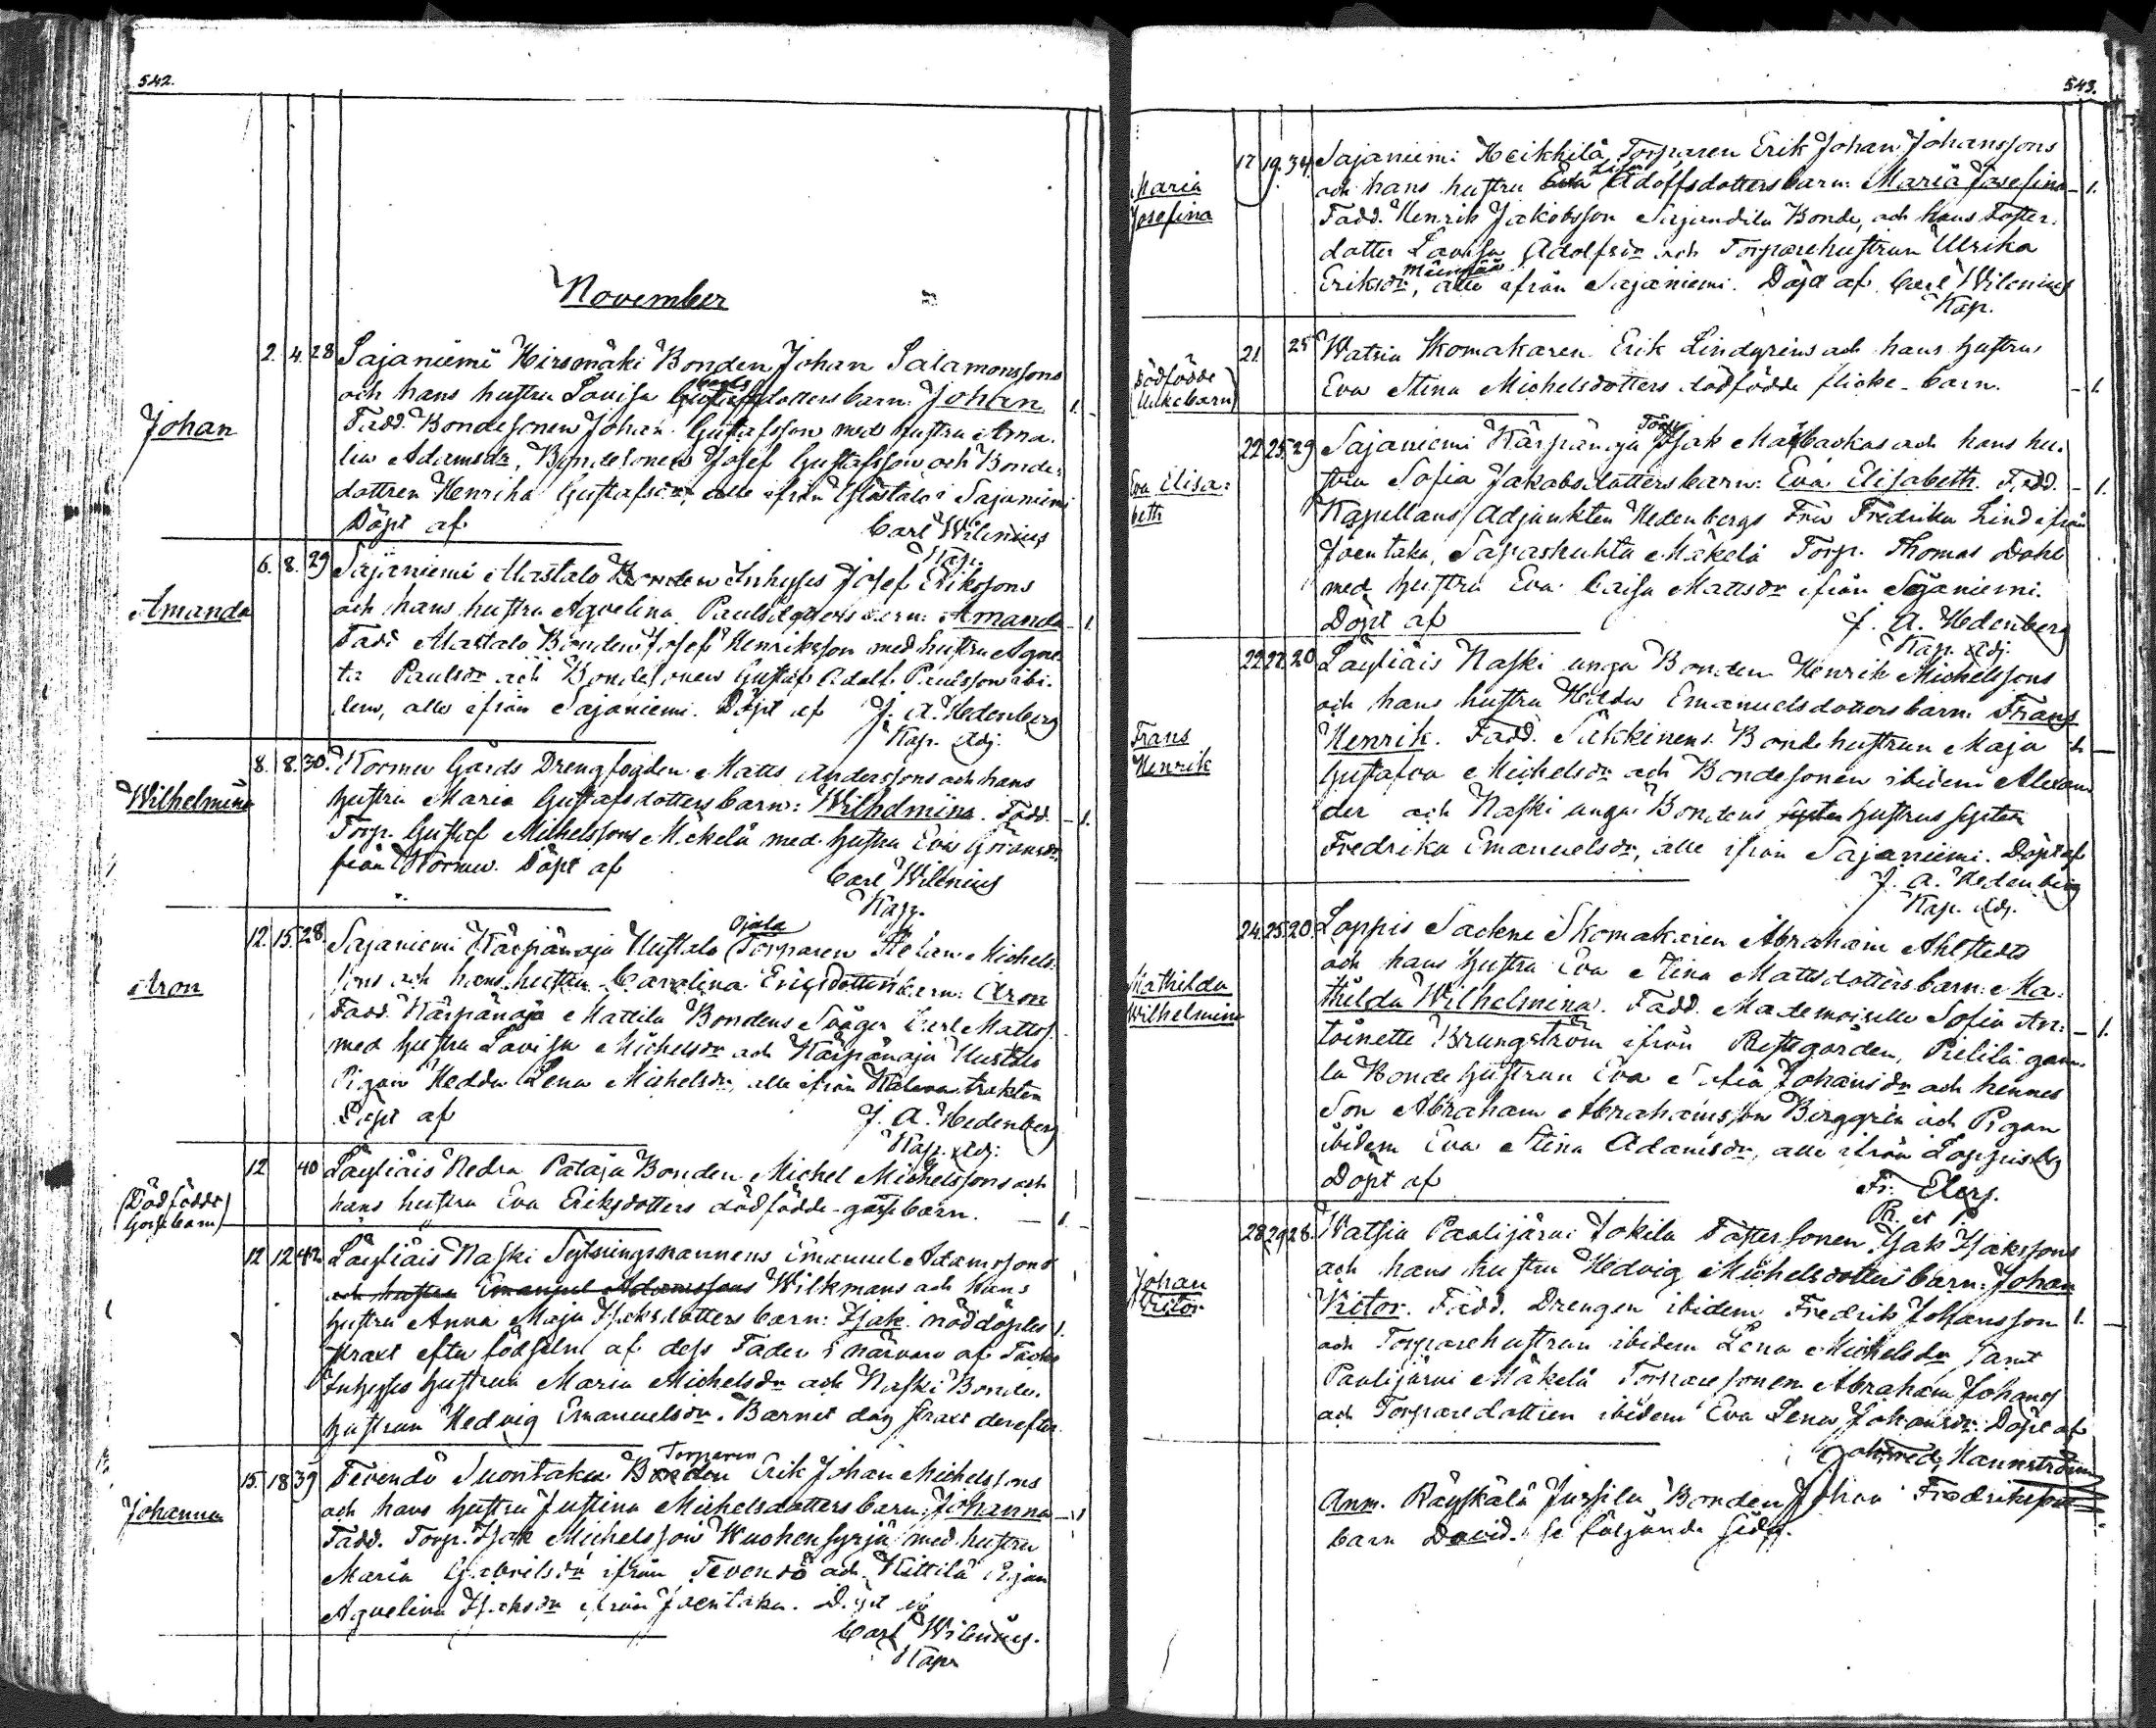 542.
November
Johan
2. 4. 28 Sajaniemi Hirsmäki Bonden Johan Salamonssons
och hans hustru Lovisa dottersbarn: Johan 1.
Fadd. Bondesonen Johan Gustafsson med hustru Ama-
lia Adamsdr, Bondesonen Josef Gustafsson och Bonde-
dottren Henrika Gustafsdr, alle ifrån Sajaniemi
Döpt af Carl Wilenius
Kap.
Amanda
6. 8. 29 Sajaniemi Mastalo Bonden Inhyses Josef Erikssons
och hans hustru Aqvelina Paulsdotters barn: Amanda 1.
Fadd Mastalo Bonden Josef Henriksson med hustru Agne-
ta Paulsdr och Bondesonen Gustaf Adolf Paulsson ibi-
dem, alle ifrån Sajaniemi. Döpt af J. A. Hedenberg
Kap. Adj.
Wilhelmina
8. 8. 30. Kormu Gårds Drengfogden Matts Anderssons och hans
hustru Maria Gustafsdotters barn: Wilhelmina. Fadd. 1.
Torp. Gustaf Michelssons Mäkelä med hustru Eva Göransdr
från Kormu. Döpt af Carl Wilenius
Kap.
Aron
12. 15. 28. Sajaniemi Kärpänoja Uustalo Ojala Torparen Michels-
sons och hans hustru Carolina Ericsdotters barn: Aron
Fadd. Kärpänoja Mattila Bondens Svåger Carl Mattss.
med hustru Lovisa Michelsdr och Kärpänoja Uustalo
Pigan Hedda Lena Michelsdr, alle ifrån trakten
Döpt af J. A. Hedenberg
Kap. Adj.
(Dödfödde
Gossebarn)
12 40 Läyliäis Nedra Pataja Bonden Michel Michelssons och
hans hustru Eva Eriksdotters dödfödde gossebarn. 1.
12 12 42 Läyliäis Naski Sytningsmannens Emanuel Adamssons
och hustru Emanuel Adamssons Wilkmans och hans
hustru Anna Maja Isaksdotters barn: Isak nöddöptes 1.
straxt efter födseln af dess Fader i närvaro af
Inhyses hustrun Maria Michelsdr och Naski Bonde-
hustrun Hedvig Emanuelsdr. Barnet dog straxt derefter.
Johanna
15. 18 39 Tevendö Suontaka Bonden Torparen Erik Johan Michelssons
och hans hustru Justina Michelsdotters barn: Johanna 1
Fadd. Torp. Isak Michelsson Wuohensyrjä med hustru
Maria Gabrielsdr ifrån Tevendö och Kittilä Pigan
Aqvelina Isaksdr ifrån Joentaka. Döpt af
Carl Wilenius.
Kap.
543.
Maria
Josefina
17 19. 34 Sajaniemi Heikkilä Torparen Erik Johan Johanssons
och hans hustru Adolfsdotters barn: Maria Josefina 1.
Fadd. Henrik Jakobsson Bonde, och hans Foster-
dotter Lovisa Adolfsdr och Torparehustrun Ulrika
Eriksdr, alle ifrån Sajaniemi. Döpt af Carl Wilenius
Kap.
Dödfödde
flickebarn)
21. 25 Watsia Skomakaren Erik Lindgrens och hans hustrus
Eva Stina Michelsdotters dödfödde flicke-barn. 1.
Eva Elisa-
beth
22. 25. 29 Sajaniemi Kärpänoja Torp. Isak och hans hu-
stru Sofia Jakobsdotters barn: Eva Elisabeth. Fadd. 1.
Kapellans Adjunkten Hedenbergs Fru Fredrika Lind ifrån
Joentaka, Mäkelä Torp. Thomas
med hustru Eva Caisa Mattsdr ifrån Sajaniemi.
Döpt af J. A. Hedenberg
Kap. Adj.
Frans
Henrik
22. 27. 20 Läyliäis Naski unga Bonden Henrik Michelssons
och hans hustru Hedda Emanuelsdotters barn: Frans
Henrik. Fadd. Säkkinens Bondehustrun Maja 1.
Gustafva Michelsdr och Bondesonen ibidem Alexan-
der och Naski unga Bondens syster hustrus syster
Fredrika Emanuelsdr, alle ifrån Sajaniemi. Döpt af
J. A. Hedenberg
Kap. Adj.
Mathilda
Wilhelmina
24. 25. 20. Loppis Skomakaren Abraham Ahlstedts
och hans hustru Eva Stina Mattsdotters barn: Ma-
thilda Wilhelmina. Fadd. Mademoiselle Sofia An- 1.
toinette Brungström ifrån Prestgården, Pietilä gam-
la Bondehustrun Eva Sofia Johansdr och hennes
Son Abraham Abrahamsson Berggrén och Pigan
ibidem Eva Stina Adamsdr, alle ifrån Loppis by
Döpt af Fr. Elers.
P. et P.
Johan
Victor
28. 29 28. Watsia Paalijärvi Jokila Isak Isakssons
och hans hustru Hedvig Michelsdotters barn: Johan
Victor. Fadd. Drengen ibidem Fredrik Johansson 1.
och Torparehustrun ibidem Lena Michelsdr samt
Paalijärvi Mäkelä Torparesonen Abraham Johanss.
och Torparedottren ibidem Eva Lena Johansdr. Döpt af
Joh. Fred. Hannström
Anm. Räyskälä Jussila Bonden Johan Fredrikssons
barn David. se följande sida.